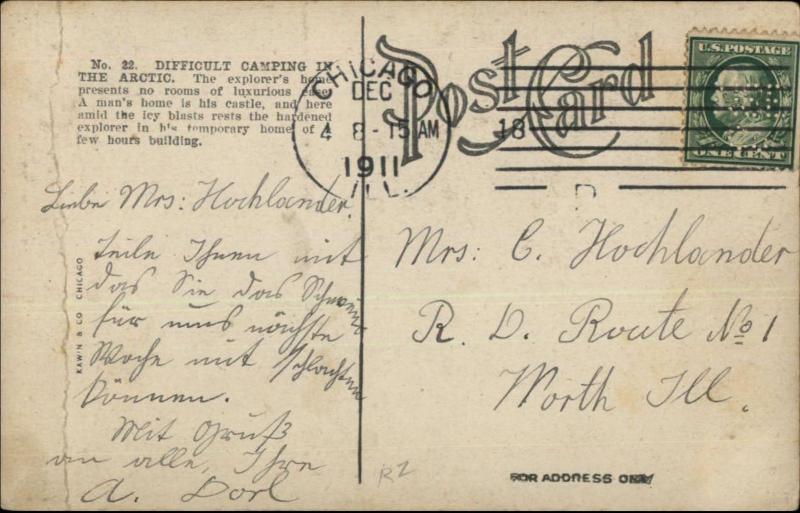 No. 22. DIFFICULT CAMPING IN
THE ARCTIC. The explorer's home
presents no rooms of luxurious ease.
A man's home is his castle, and here
amid the icy blasts rests the hardened
explorer in his temporary home of a
few hours building.
Post Card
CHICAGO
DEC
4 8-15 AM
1911
ILL.
18
D
U.S. POSTAGE
ONE CENT
Liebe Mrs: Hochlander.
teile Ihnen mit
das Sie das Schwein
für uns nächste
Woche mit schlachten
können.
Mit Gruß
an alle, Ihre
A. Dorl
KAWIN & CO CHICAGO
Mrs: C. Hochlander
R. D. Route No 1
Worth Ill.
R2
FOR ADDRESS ONLY